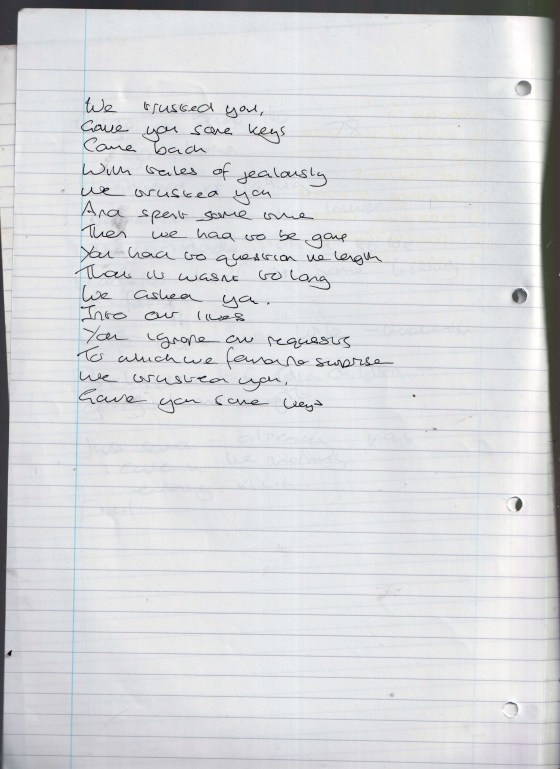 We trusted you,
Gave you some keys
Came back
With tales of jealously
We trusted you
And spent some time
Then we had to be gone
You had to question the length
That it wasnt to long
We asked you.
Into our lives
You ignore our requests
To which we found no surprise
We trusted you,
Gave you some keys